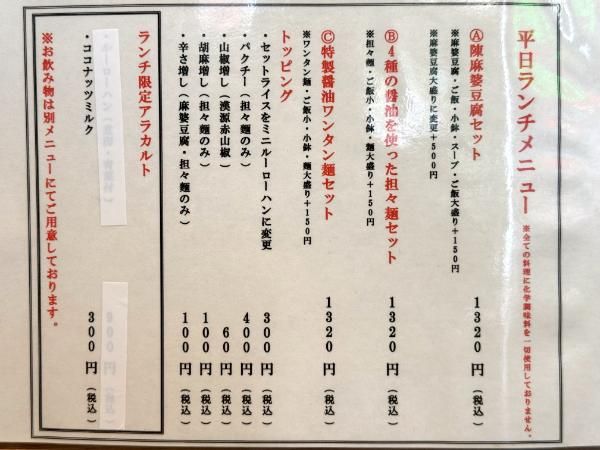 平日ランチメニュー ※全ての料理に化学調味料を一切使用しておりません。
Ⓐ陳麻婆豆腐セット 1320円(税込)
※麻婆豆腐・ご飯・小鉢・スープ・ご飯大盛り+150円
※麻婆豆腐大盛りに変更+500円
Ⓑ4種の醤油を使った担々麺セット 1320円(税込)
※担々麺・ご飯小・小鉢・麺大盛り+150円
Ⓒ特製醤油ワンタン麺セット 1320円(税込)
※ワンタン麺・ご飯小・小鉢・麺大盛り+150円
トッピング
・セットライスをミニルーローハンに変更 300円(税込)
・パクチー(担々麺のみ) 400円(税込)
・山椒増し(漢源赤山椒) 60円(税込)
・胡麻増し(担々麺のみ) 100円(税込)
・辛さ増し(麻婆豆腐・担々麺のみ) 100円(税込)
ランチ限定アラカルト
・ルーローハン 900円(税込)
・ココナッツミルク 300円(税込)
※お飲み物は別メニューにてご用意しております。